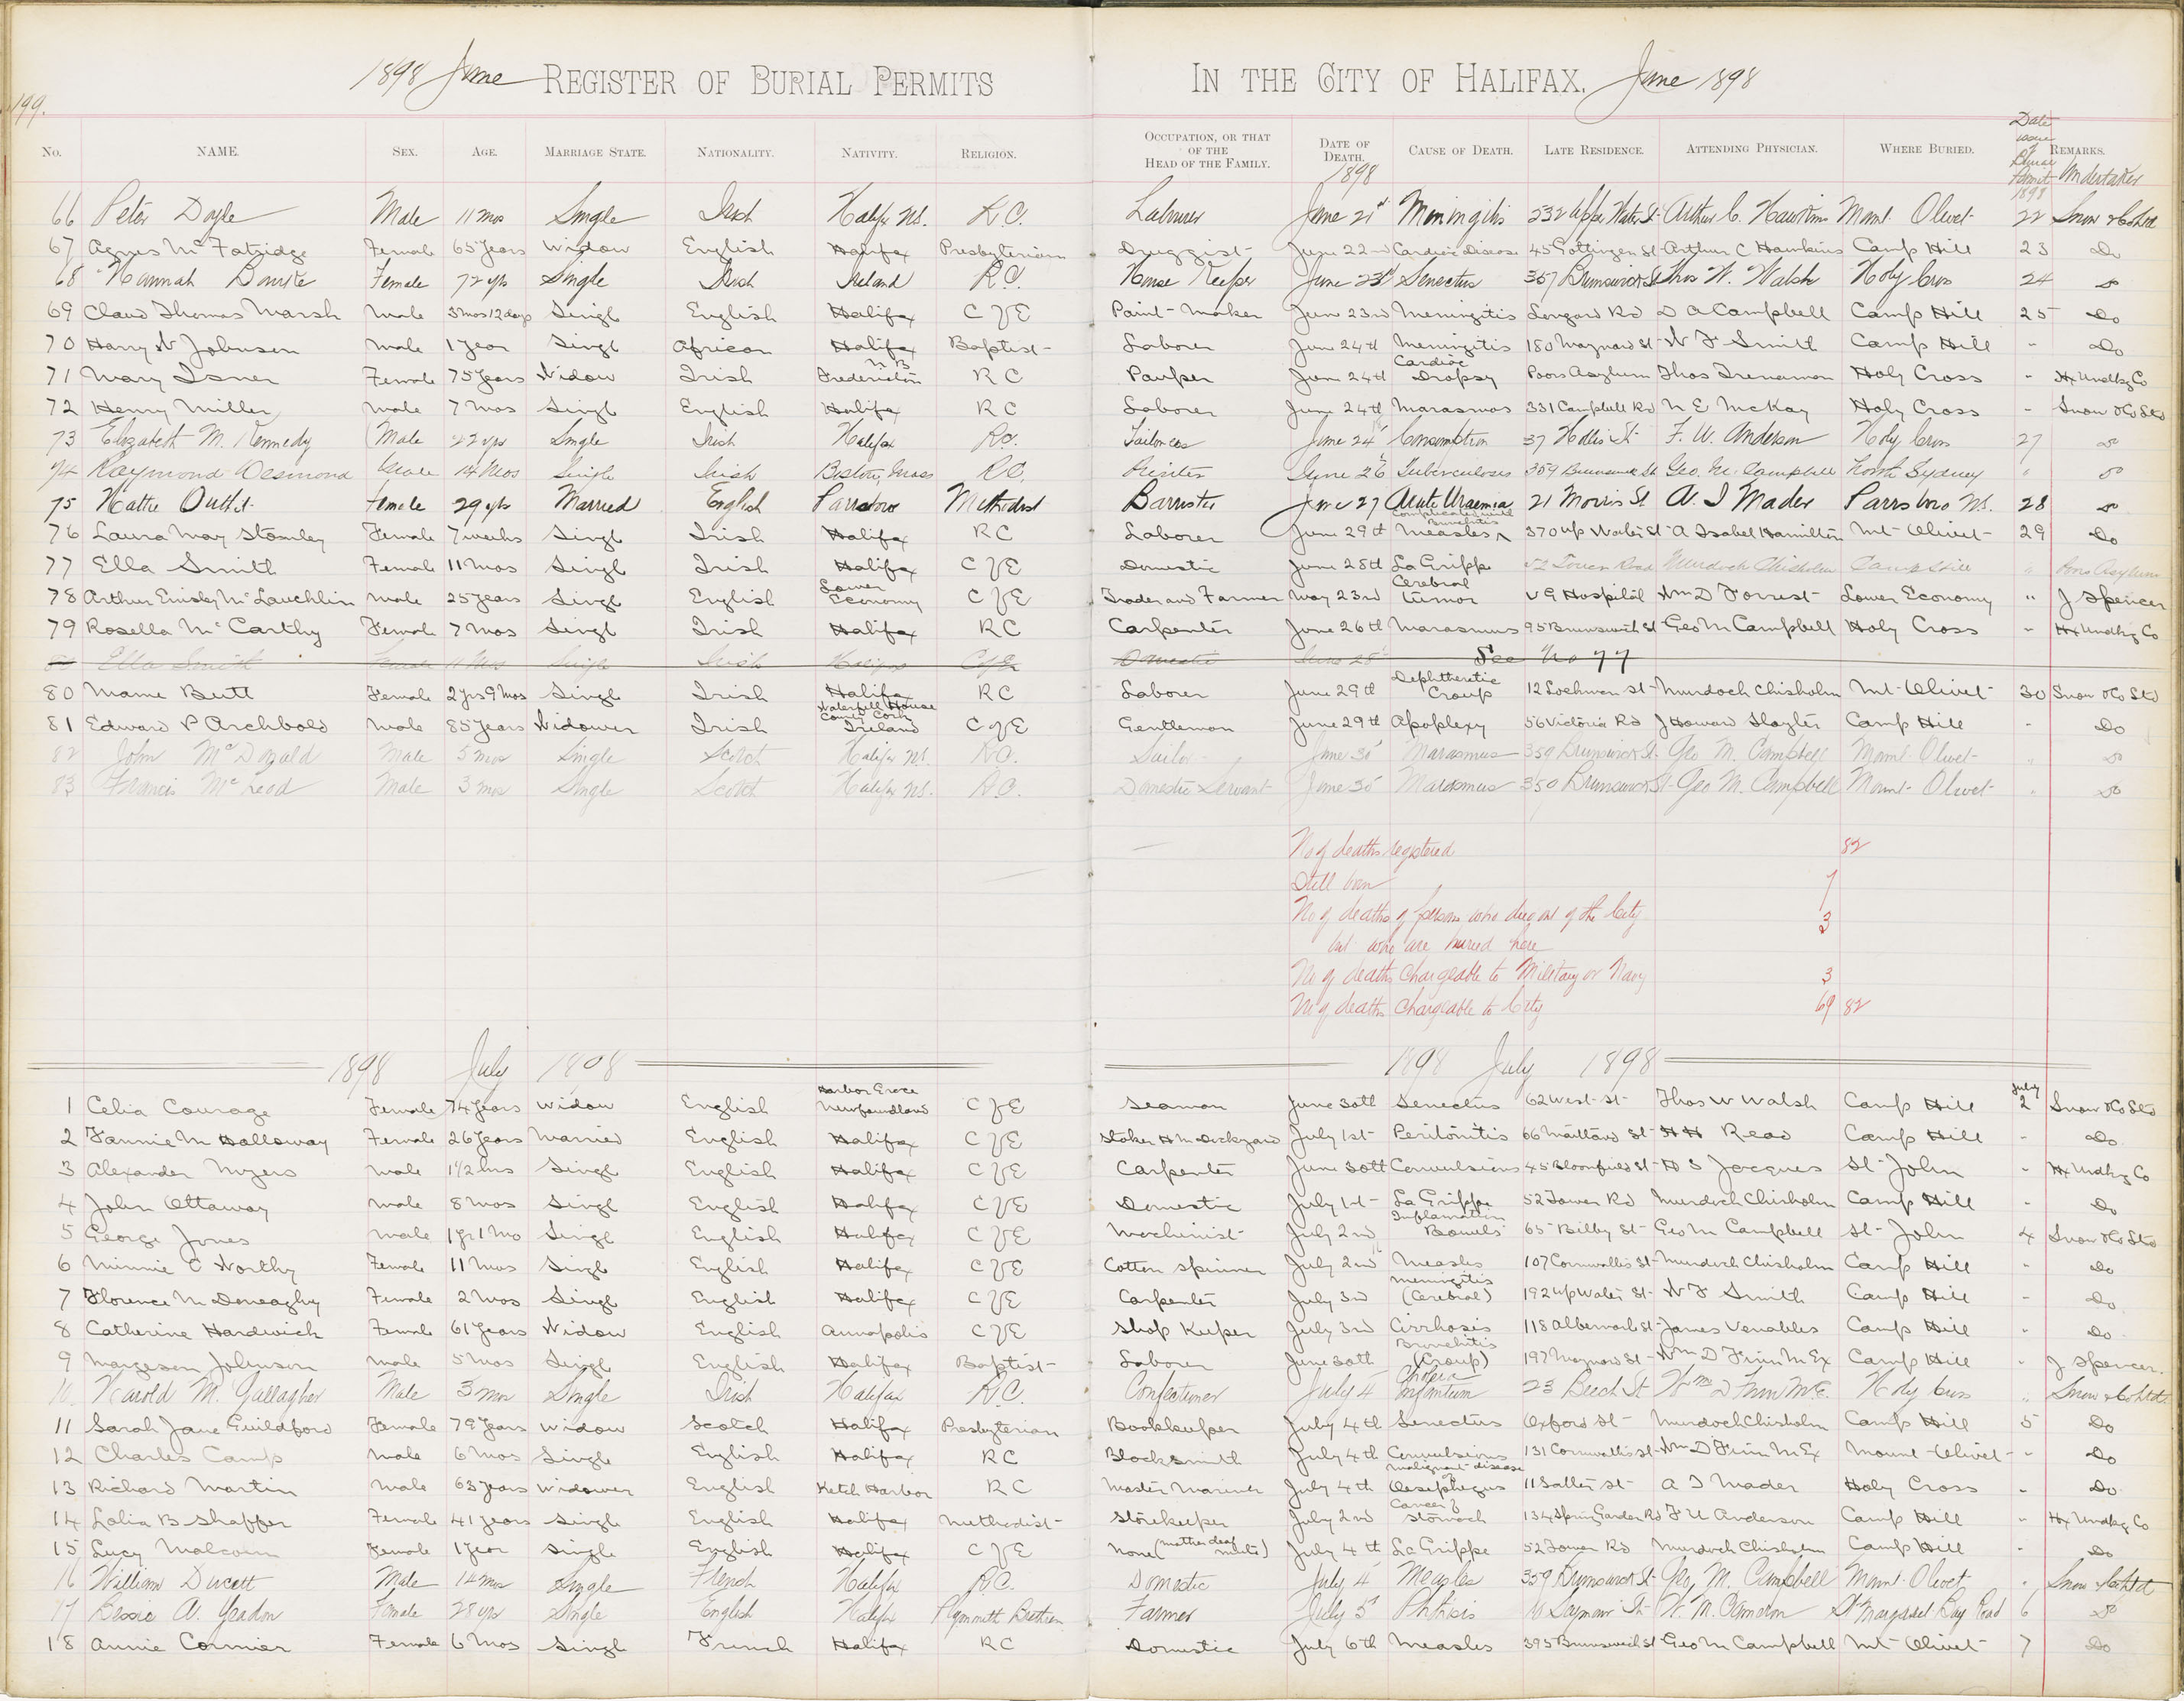 1898 June REGISTER OF BURIAL PERMITS IN THE CITY OF HALIFAX. June 1898
199.
No. NAME. SEX. AGE. MARRIAGE STATE. NATIONALITY. NATIVITY. RELIGION. OCCUPATION, OR THAT OF THE HEAD OF THE FAMILY. DATE OF DEATH. 1898 CAUSE OF DEATH. LATE RESIDENCE. ATTENDING PHYSICIAN. WHERE BURIED. Date issue of Burial Permit 1898 REMARKS. Undertaker
66 Peter Doyle Male 11 mos Single Irish Halifax NS. R.C. Labourer June 21st Meningitis 232 Upper Water St Arthur C. Hawkins Mount Olivet 22 Snow & Co Ltd
67 Agnes McFatridge Female 65 Years Widow English Halifax Presbyterian Druggist June 22nd Cardiac Disease 45 Gottingen St Arthur C Hawkins Camp Hill 23 Do
68 Hannah Female 72 yrs Single Irish Ireland R.C. House Keeper June 23d Senectus 357 Brunswick St Thos W. Walsh Holy Cross 24 Do
69 Claud Thomas Marsh Male 3 mos 12 days Singl English Halifax C of E Paint-Maker June 23rd Meningitis Longard Rd D A Campbell Camp Hill 25 Do
70 Harry W Johnson Male 1 Year Singl African Halifax Baptist Laborer June 24th Meningitis 180 Maynard St W F Smith Camp Hill " Do
71 Mary Isner Female 75 Years Widow Irish Fredericton N B R C Pauper June 24th Cardiac Dropsy Poors Asylum Thos Trenaman Holy Cross " Hx Undtkg Co
72 Henry Miller Male 7 Mos Singl English Halifax R C Laborer June 24th Marasmus 331 Campbell Rd N E McKay Holy Cross " Snow & Co Ltd
73 Elizabeth M. Kennedy Male 22 yrs Single Irish Halifax R.C. Tailoress June 24 Consumption 37 Hollis St F. W. Anderson Holy Cross 27 Do
74 Raymond Desmond Male 14 Mos Single Irish Boston, Mass R.C. Printer June 26 Tuberculosis 359 Brunswick St Geo. M. Campbell North Sydney " Do
75 Hattie Outhit Female 29 yrs Married English Parrsboro Methodist Barrister June 27 Acute Uraemia 21 Morris St A. I Mader Parrsboro NS. 28 Do
76 Laura May Stanley Female 7 weeks Singl Irish Halifax R C Laborer June 29th Measles complicated with Bronchitis 370 Up Water St A Isabel Hamilton Mt Olivet 29 Do
77 Ella Smith Female 11 Mos Singl Irish Halifax C of E Domestic June 28th La Grippe 52 Tower Road Murdoch Chisholm Camp Hill " Poors Asylum
78 Arthur McLauchlin Male 25 Years Singl English Lower Economy C of E Trader and Farmer May 23rd Cerebral tumor V G Hospital Wm D Forrest Lower Economy " J Spencer
79 Rosella McCarthy Female 7 Mos Singl Irish Halifax R C Carpenter June 26th Marasmus 95 Brunswick St Geo M Campbell Holy Cross " Hx Undtkg Co
Ella Smith Female 11 Mos Single Irish Halifax C of E Domestic June 28 See No 77
80 Mame Butt Female 2 yrs 9 Mos Singl Irish Halifax R C Laborer June 29th Dephtheretic Croup 12 Lochman St Murdoch Chisholm Mt Olivet 30 Snow & Co Ltd
81 Edward P Archbold Male 85 Years Widower Irish Waterfall House County Cork Ireland C of E Gentleman June 29th Apoplexy 56 Victoria Rd J Howard Slayter Camp Hill " Do
82 John McDonald Male 5 mos Single Scotch Halifax NS. R.C. Sailor June 30 Marasmus 359 Brunswick St. Geo M. Campbell Mount Olivet " Do
83 Francis McLeod Male 3 mos Single Scotch Halifax NS. R.C. Domestic Servant June 30 Marasmus 350 Brunswick St Geo M. Campbell Mount Olivet " Do
No of deaths registered 82
Still born 7
No of deaths of persons who died out of the City
but who are buried here 3
No of deaths chargeable to Military or Navy 3
No of deaths chargeable to City 69 82
1898 July 1898 1898 July 1898
1 Celia Courage Female 74 Years Widow English Harbor Grace Newfoundland C of E Seaman June 30th Senectus 62 West St Thos W Walsh Camp Hill July 2 Snow & Co Ltd
2 Fannie M Halloway Female 26 Years Married English Halifax C of E Stoker H M Dockyard July 1st Peritonitis 66 Maitland St H H Read Camp Hill " Do.
3 Alexander Myers Male 1 1/2 hrs Singl English Halifax C of E Carpenter June 30th Convulsions 45 Bloomfield St H S Jacques St John " Hx Undtkg Co
4 John Ottaway Male 8 Mos Singl English Halifax C of E Domestic July 1st La Grippe 52 Tower Rd Murdoch Chisholm Camp Hill " Do
5 George Jones Male 1 yr 1 Mo Singl English Halifax C of E Machinist July 2nd Inflamation Bowels 65 Bilby St Geo M Campbell St John 4 Snow & Co Ltd
6 Minnie C Worthy Female 11 Mos Singl English Halifax C of E Cotton Spinner July 2nd Measles 107 Cornwallis St Murdoch Chisholm Camp Hill " Do
7 Florence M Doneaghy Female 2 Mos Singl English Halifax C of E Carpenter July 3rd Meningitis (Cerebral) 192 Up Water St W F Smith Camp Hill " Do
8 Catherine Hardwick Female 61 Years Widow English Annapolis C of E Shop Keeper July 3rd Cirrhosis 118 Albermarle St James Venables Camp Hill " Do
9 Margeson Johnson Male 5 Mos Singl English Halifax Baptist Laborer June 30th Bronchitis (Croup) 197 Maynard St Wm D Finn M Ex Camp Hill " J Spencer.
10. Harold M. Gallagher Male 3 mos Single Irish Halifax R.C. Confectioner July 4 Cholera Infantum 23 Beech St Wm D Finn M.E. Holy Cross " Snow & Co Ltd
11 Sarah Jane Guildford Female 79 Years Widow Scotch Halifax Presbyterian Bookkeeper July 4th Senectus Oxford St Murdoch Chisholm Camp Hill 5 Do
12 Charles Camp Male 6 Mos Single English Halifax R C Blacksmith July 4th Convulsions 131 Cornwallis St Wm D Finn M Ex Mount Olivet " Do
13 Richard Martin Male 63 Years Widower English Ketch Harbor R C Master Mariner July 4th Malignant disease of Oesephegus 11 Salter St A I Mader Holy Cross " Do
14 Lalia B Shaffer Female 41 Years Single English Halifax Methodist Storekeeper July 2nd Cancer of Stomach 134 Spring Garden Rd F U Anderson Camp Hill " Hx Undtkg Co
15 Lucy Malcolm Female 1 Year Single English Halifax C of E None (mother deaf mute) July 4th La Grippe 52 Tower Rd Murdoch Chisholm Camp Hill " Do
16 William Ducett Male 14 mos Single French Halifax R.C. Domestic July 4 Measles 359 Brunswick St Geo. M. Campbell Mount Olivet " Snow & Co Ltd
17 Bessie A. Yeadon Female 28 yrs Single English Halifax Plymouth Brethren Farmer July 5 Phthisis Seymour St W. M. Cameron St Margaret Bay Road 6 Do
18 Annie Cormier Female 6 Mos Singl French Halifax R C Domestic July 6th Measles 395 Brunswick St Geo M Campbell Mt Olivet 7 Do